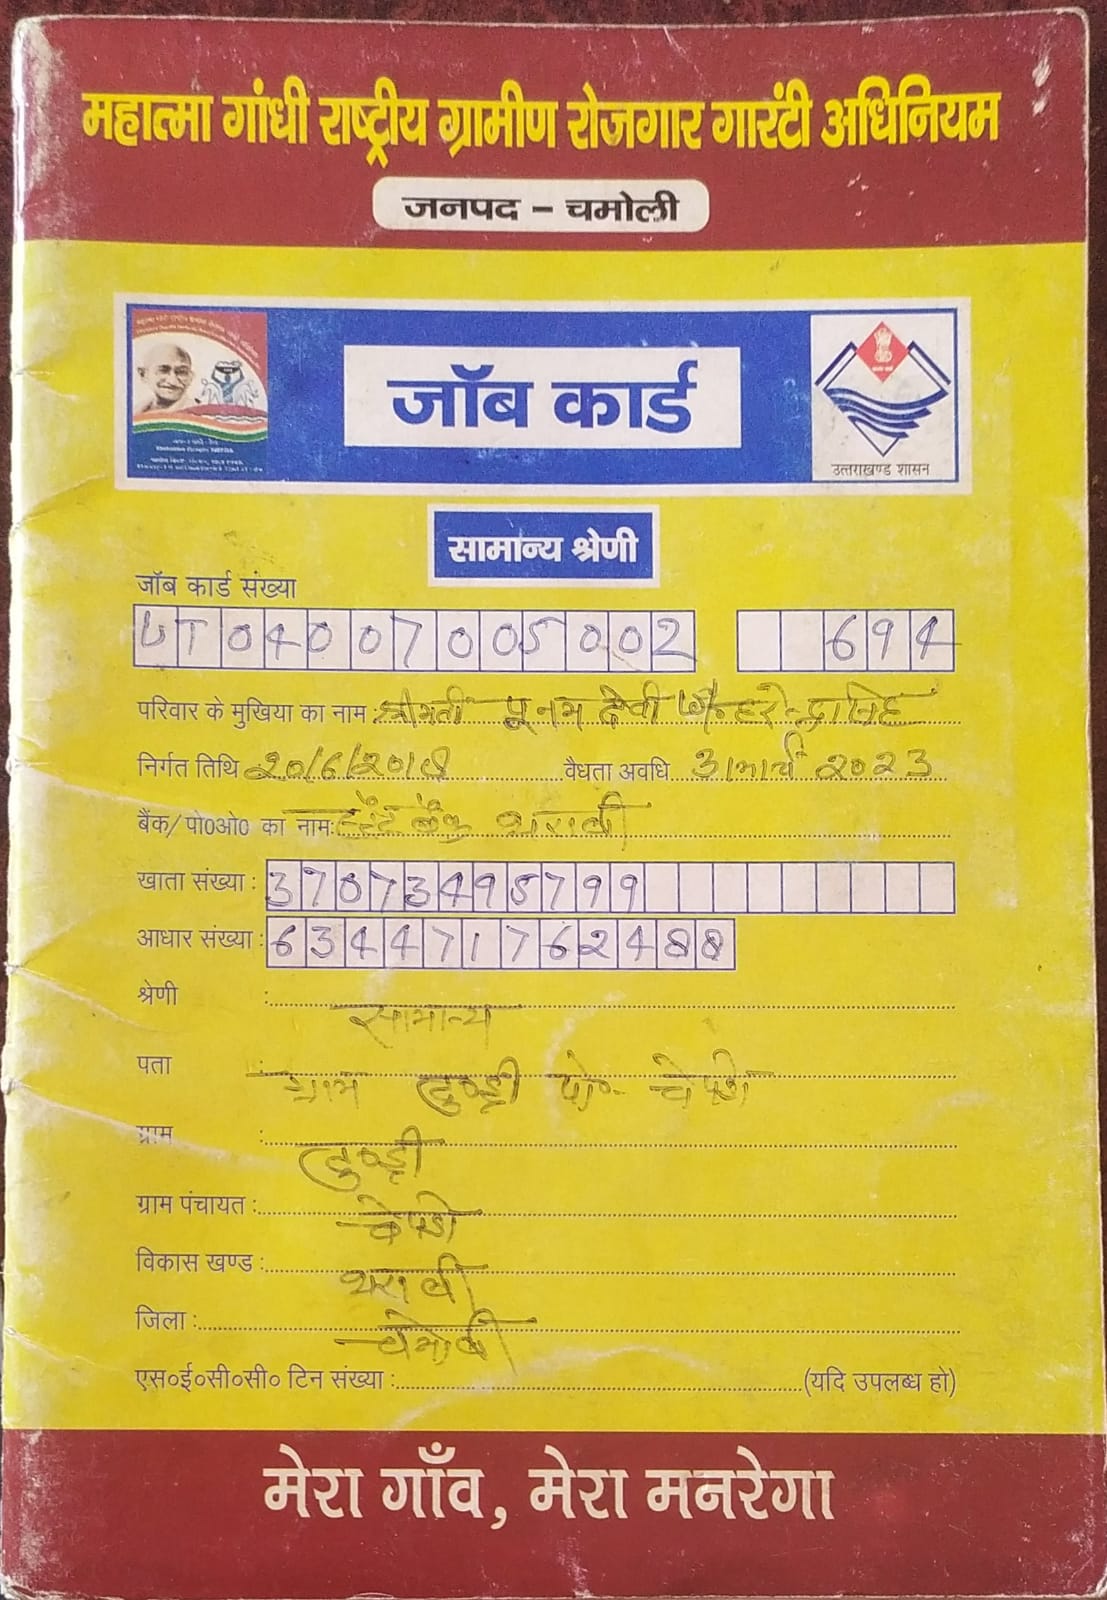 महात्मा गांधी राष्ट्रीय ग्रामीण रोजगार गारंटी अधिनियम
जनपद - चमोली
जॉब कार्ड
उत्तराखण्ड शासन
सामान्य श्रेणी
जॉब कार्ड संख्या
UT04007005002 694
परिवार के मुखिया का नाम : श्रीमती पूनम देवी
निर्गत तिथि 20/6/2018 वैधता अवधि 31 मार्च 2023
बैंक/पो०ओ० का नाम: स्टेट बैंक थराली
खाता संख्या : 37073495799
आधार संख्या : 634471762488
श्रेणी : सामान्य
पता : ग्राम पो०
ग्राम :
ग्राम पंचायत :
विकास खण्ड : थराली
जिला : चमोली
एस०ई०सी०सी० टिन संख्या : (यदि उपलब्ध हो)
मेरा गाँव, मेरा मनरेगा